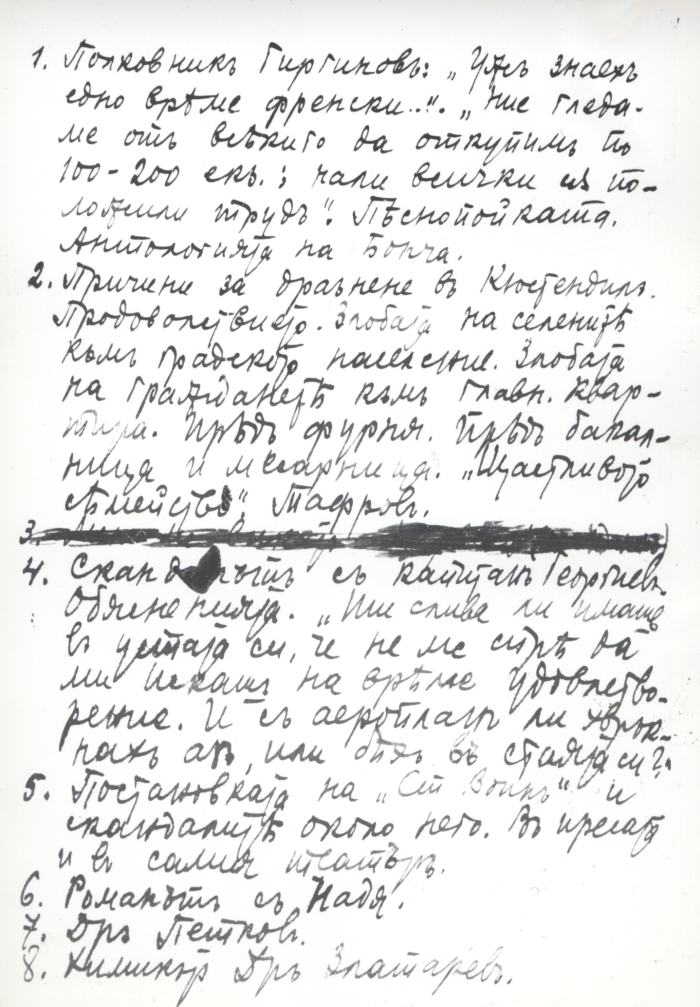 1. Полковникъ Гиргиновъ: „Ужъ знаехъ
едно врѣме френски...“. „Ние гледа-
ме отъ всѣкиго да откупимъ по
100-200 екз.; нали всички сѫ по-
ложили трудъ“. Пѣснопойката.
Антологията на Борча.
2. Причини за дразнене въ Кюстендилъ.
Продоволствието. Злобата на селенитѣ
къмъ градското население. Злобата
на гражданетѣ къмъ главн. квар-
тира. Прѣдъ фурня. Прѣдъ бакал-
ница и месарница. „Щастливото
сѣмейство“, Тафровъ.
3.
4. Скандалътъ съ капитанъ Георгиевъ.
Обясненията. „Ти слива ли имаше
въ устата си, че не ме спрѣ да
ми искашъ на врѣме удовлетво-
рение. И съ аеропланъ ли хврък-
нахъ азъ, или бѣхъ въ стаята си?“
5. Постановката на „Св. Воинъ“ и
скандалитѣ около него. Въ пресата
и въ самия театъръ.
6. Романътъ съ Надя.
7. Дръ Петковъ.
8. Химикътъ Дръ Златаревъ.